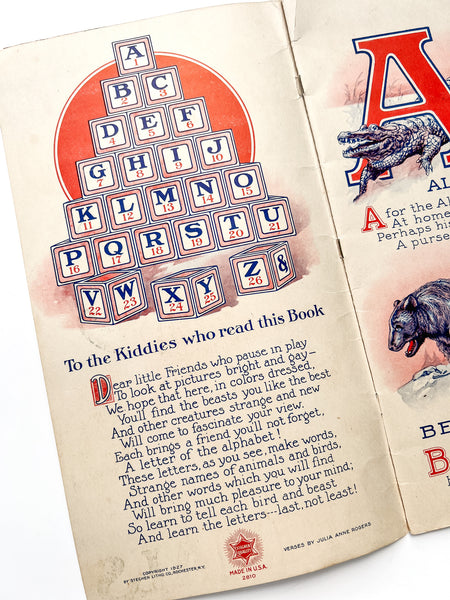 A
1
B C
2 3
D E F
4 5 6
G H I J
7 8 9 10
K L M N O
11 12 13 14 15
P Q R S T U
16 17 18 19 20 21
V W X Y Z &
22 23 24 25 26
To the Kiddies who read this Book
Dear little Friends who pause in play
To look at pictures bright and gay—
We hope that here, in colors dressed,
You'll find the beasts you like the best
And other creatures strange and new
Will come to fascinate your view.
Each brings a friend you'll not forget,
A letter of the alphabet!
These letters, as you see, make words,
Strange names of animals and birds,
And other words which you will find
Will bring much pleasure to your mind;
So learn to tell each bird and beast
And learn the letters---last, not least!
COPYRIGHT 1927
BY STECHER LITHO. CO., ROCHESTER, N.Y.
STECHER
QUALITY
MADE IN U.S.A.
2810
VERSES BY JULIA ANNE ROGERS
A
AL
A for the Al
At home
Perhaps hi
A purse
BE
B